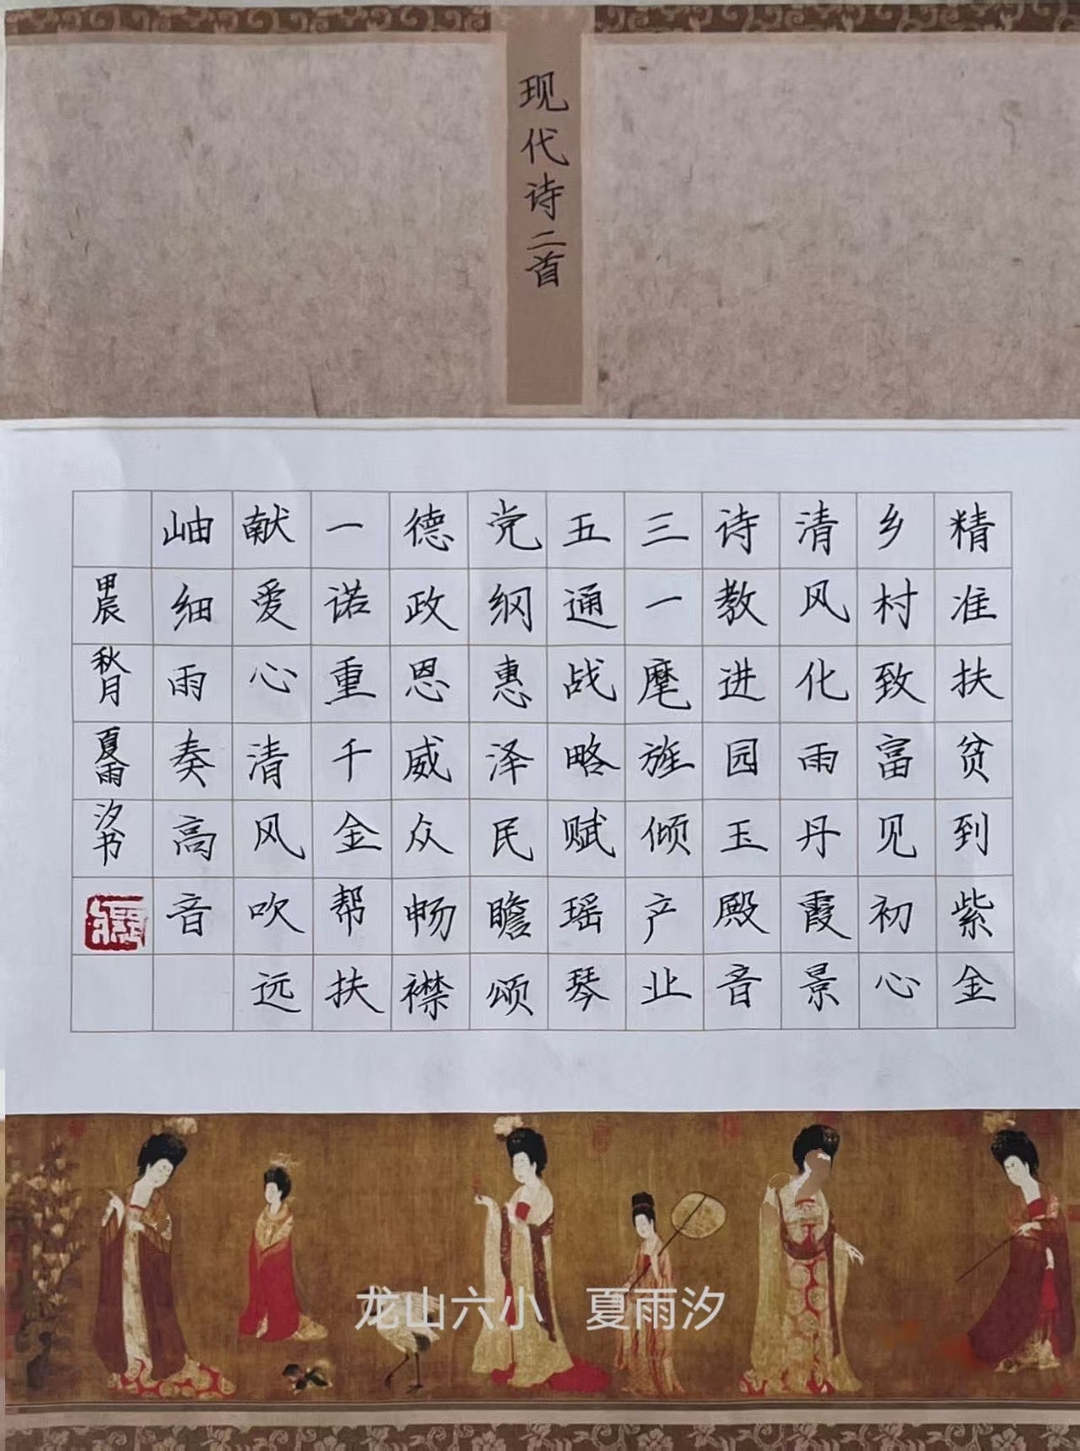 现代诗二首
精准扶贫到紫金
乡村致富见初心
清风化雨丹霞景
诗教进园玉殿音
三一麾旌倾产业
五通战略赋瑶琴
党纲惠泽民瞻颂
德政恩威众畅襟
一诺重千金帮扶
献爱心清风吹远
岫细雨奏高音
甲辰秋月夏雨汐书
龙山六小 夏雨汐